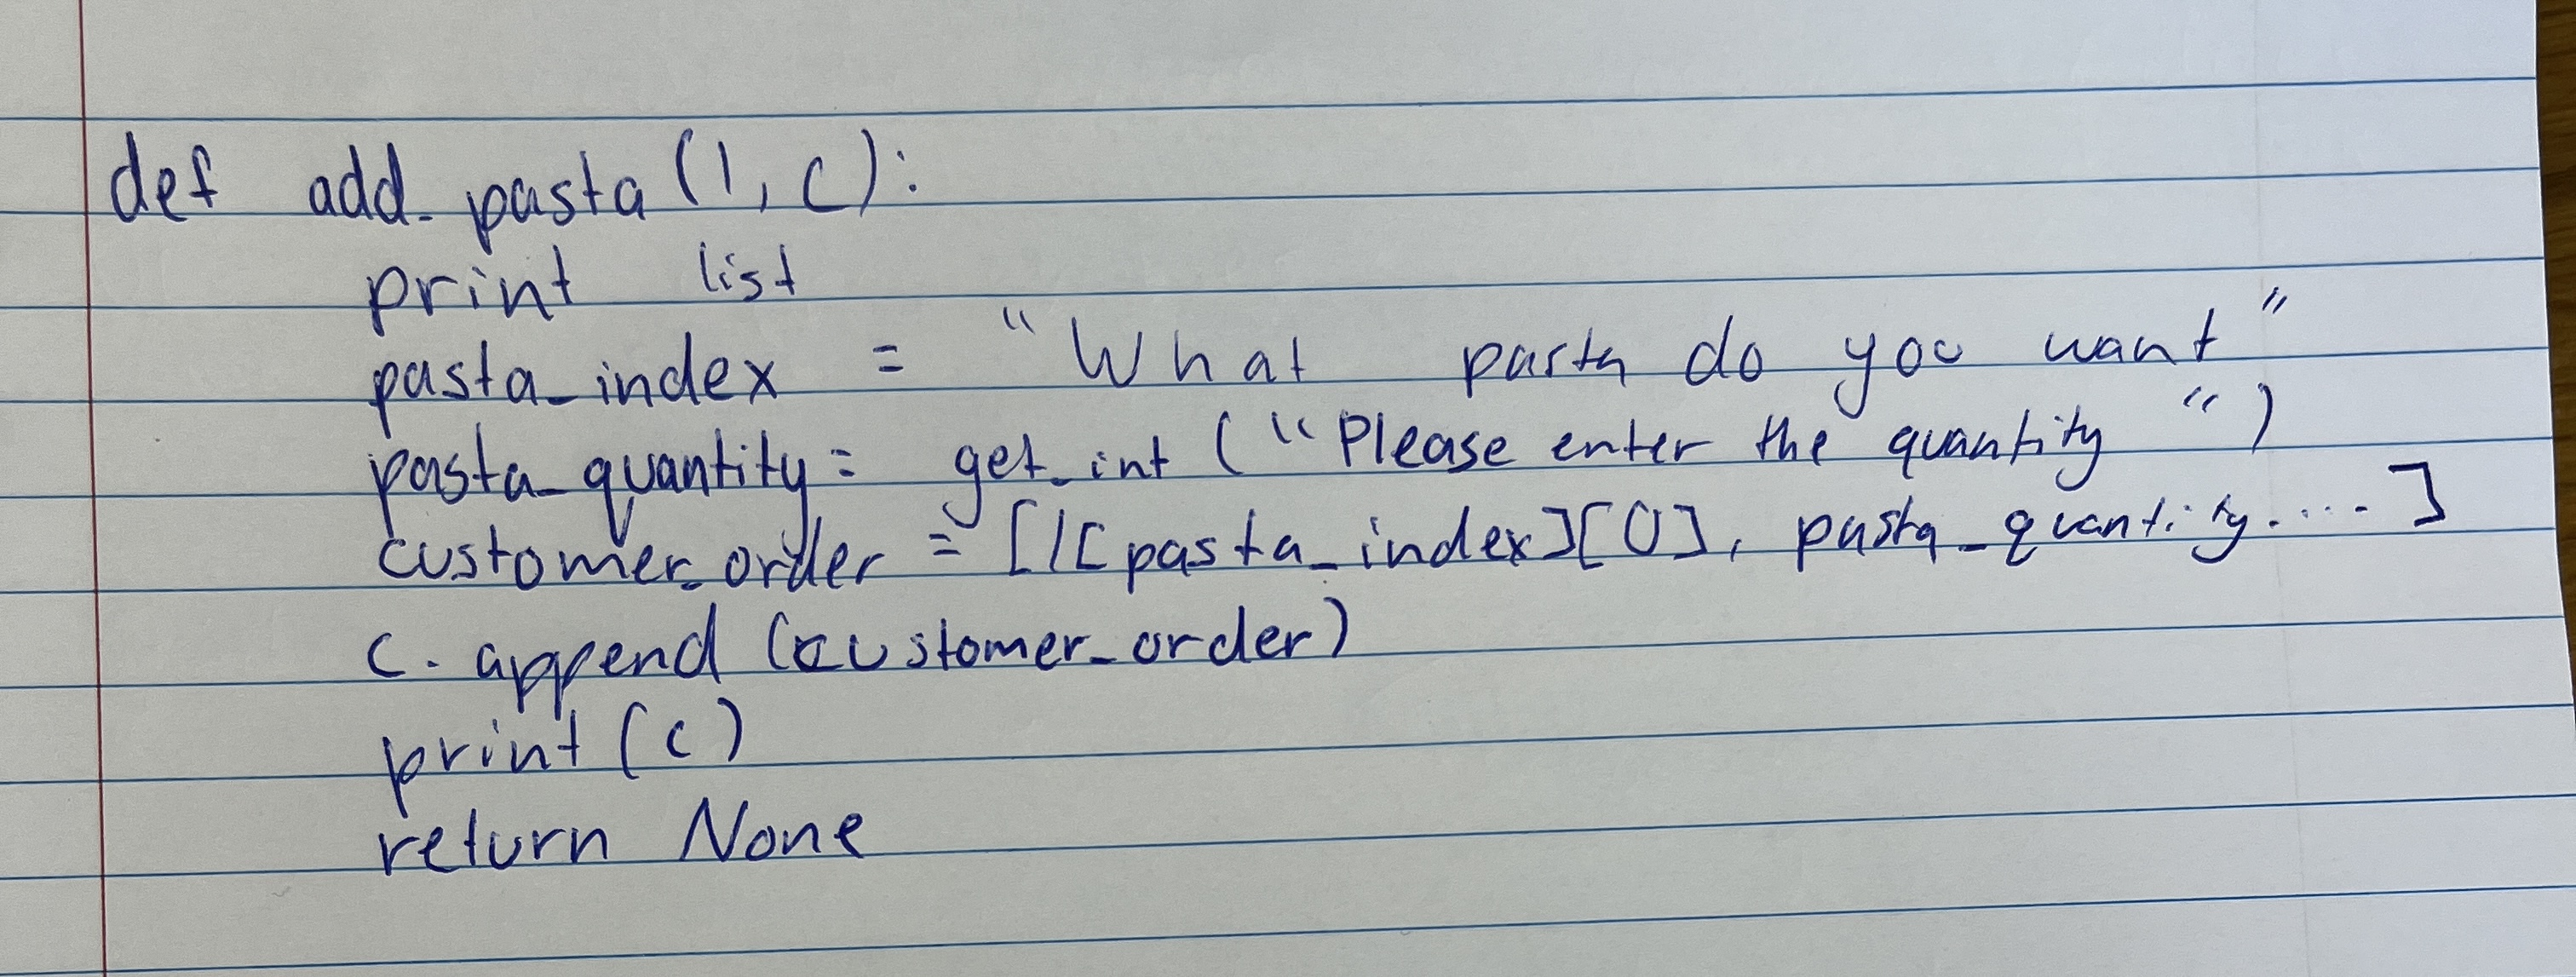 def add_pasta (l, c):
print list
pasta_index = "What pasta do you want"
pasta_quantity = get_int ("Please enter the quantity")
customer_order = [l[pasta_index][0], pasta_quantity....]
c.append (customer_order)
print (c)
return None